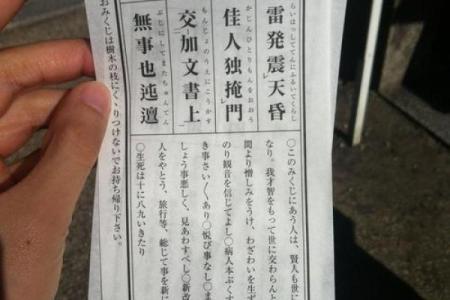 らいはっしててんにふるいてくらし
雷発震天昏
かじんひとりもんをおおう
佳人独掩門
もんじょのうえにこうかす
交加文書上
ぶじにしてまたちゅんてん
無事也迍邅
○このみくじにあう人は、賢人も世に
なり。我才智をもって世に交わらんと
間より憎しみをうけ、わざわいを生ず
のり観音を信じてよし○病人本ぷくす
き事さい〳〵あり○悦び事なし○ま
しょう事悪しく、見あわすべし○新改
人をやとう、旅行等、総じて事を新に
○生死は十に八九いきたり
おみくじは樹木の枝にくゝりつけないでお持ち帰り下さい。